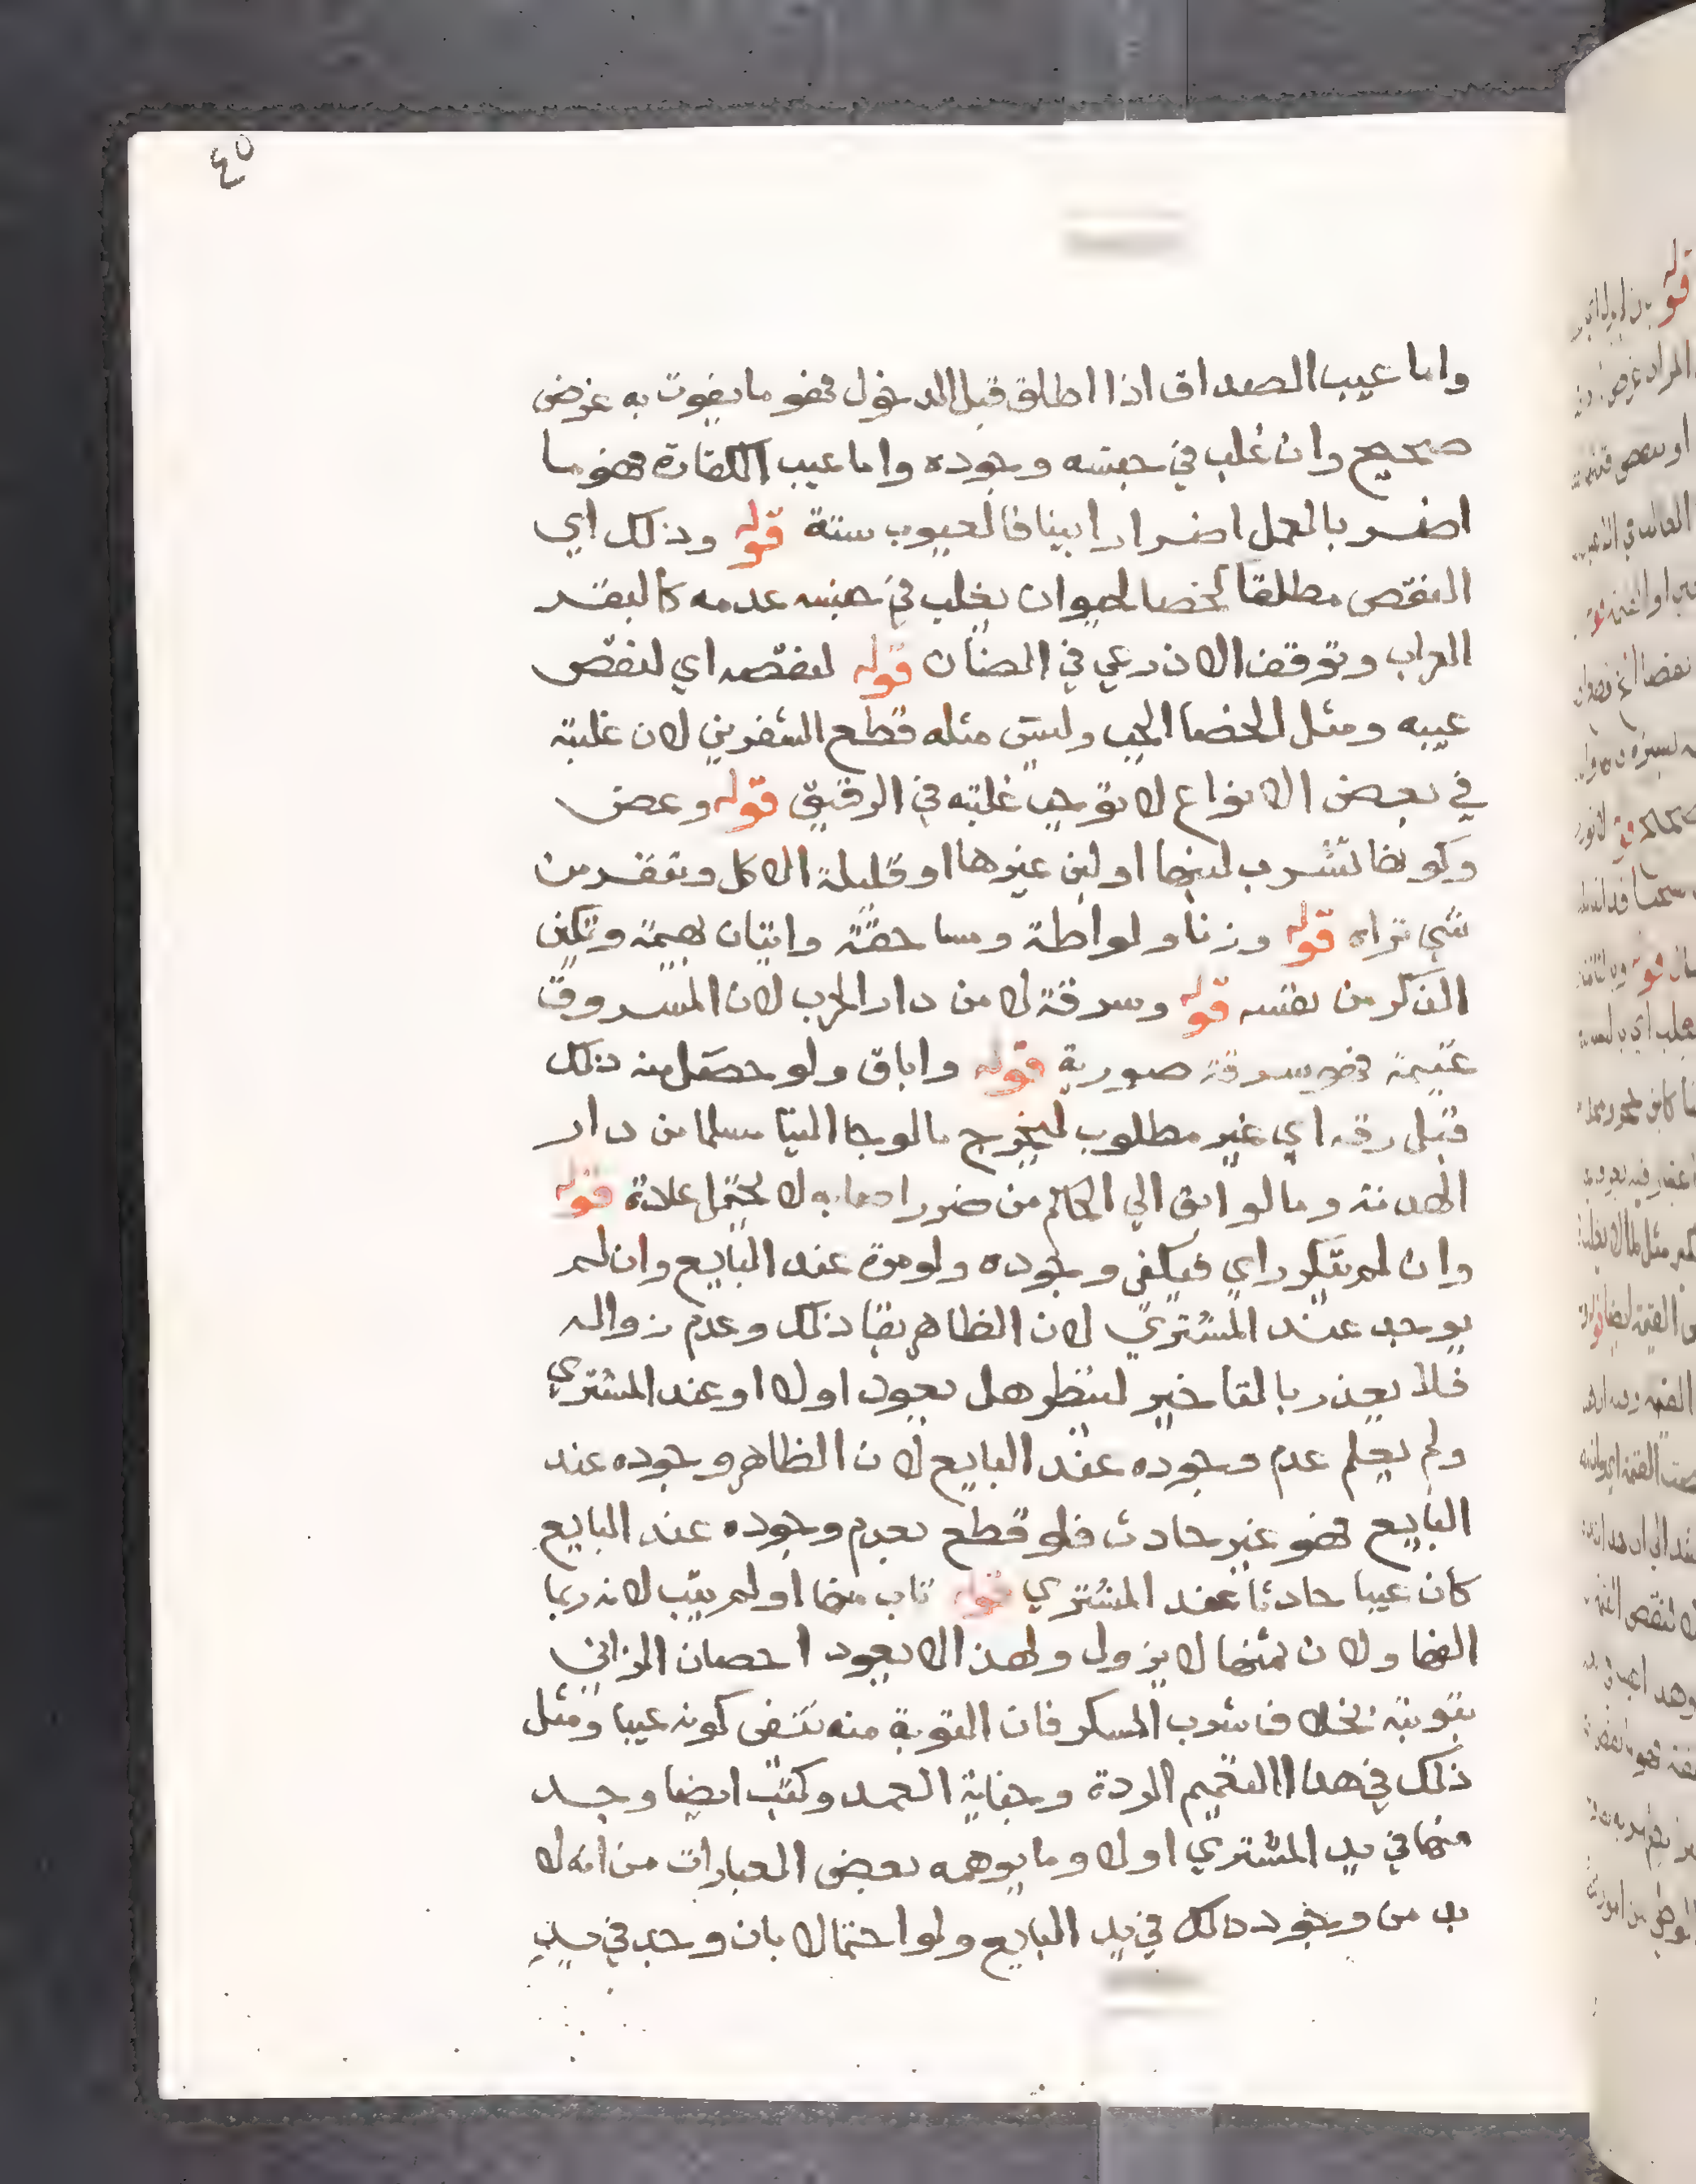 ٤٥
واما عيب الصداق اذا اطلق قبل الدخول فهو ما يفوت به غرض
صحيح وان غلب في جنسه وجوده واما عيب الكفارة فهو ما
اضر بالعمل اضرارا بينا فالعيوب ستة قوله وذلك اي
النقص مطلقا كخصا لحيوان يغلب في جنسه عدمه كالبقر
العراب وتوقف الاذرعي في الضان قوله لنقصه اي لنقص
عيبه ومثل الخصا الجب وليس مثله قطع الشفرين لان غلبته
في بعض الانواع لا توجب غلبته في الرقيق قوله وعض
وكونها تشرب لبنها او لبن غيرها او قليلة الاكل وتنفر من
شي تراه قوله وزنا ولواطة ومساحقة واتيان بهيمة وتمكين
الذكر من نفسه قوله وسرقة لا من دار الحرب لان المسروق
غنيمة فهو سرقة صورية قوله واباق ولو حصل منه ذلك
قبل رقه اي غير مطلوب ليخرج ما لو جا الينا مسلما من دار
الهدنة وما لو ابق الي الحاكم من ضرر لا يحتمل عادة قوله
وان لم يتكرر اي فيكفي وجوده ولو مرة عند البايع وان لم
يوجد عند المشتري لان الظاهر بقا ذلك وعدم زواله
فلا يعذر بالتاخير لينظر هل يعود اولا او عند المشتري
ولم يعلم عدم وجوده عند البايع لان الظاهر وجوده عند
البايع فهو غير حادث فلو قطع بعدم وجوده عند البايع
كان عيبا حادثا عند المشتري قوله تاب منها او لم يتب لانه ربما
الفها ولان تهمتها لا يزول ولهذا لا يعود احصان الزاني
بتوبته بخلاف شرب المسكر فان التوبة منه تنفى كونه عيبا ومثل
ذلك في هذا التعميم الردة وجناية العمد وكتب ايضا وجد
منها في يد المشتري اولا وما يوهمه بعض العبارات من انه لا
بد من وجود ذلك في يد البايع ولو احتمالا بان وجد في يد